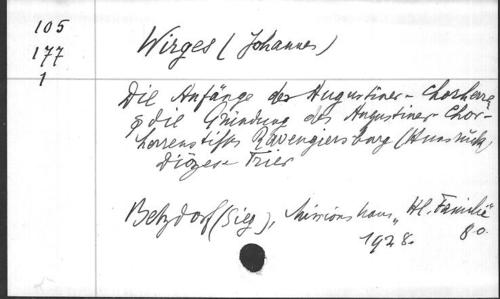 105
177
1
Wirges (Johannes)
Die Anfänge der Augustiner-Chorherren
& die Gründung des Augustiner Chor-
herrenstifts Ravengiersburg (Hunsrück)
Diözese Trier
Betzdorf (Sieg), Missionshaus "Hl. Familie"
1928. 8o.